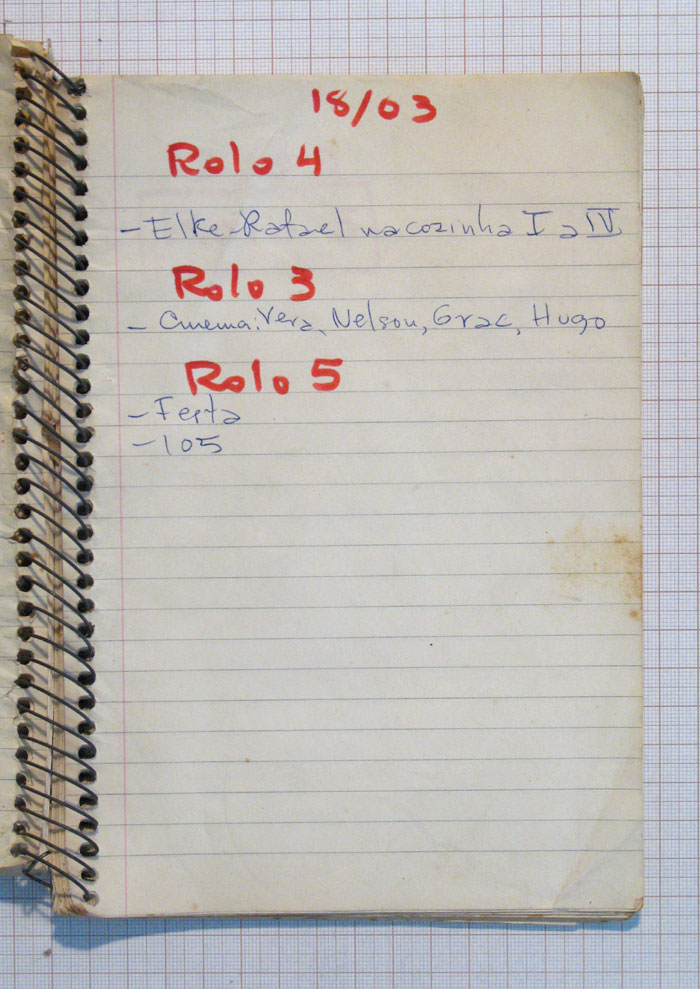 18/03
Rolo 4
- Elke-Rafael na cozinha I a IV
Rolo 3
- Cinema: Vera, Nelson, Grac, Hugo
Rolo 5
- Festa
- 105